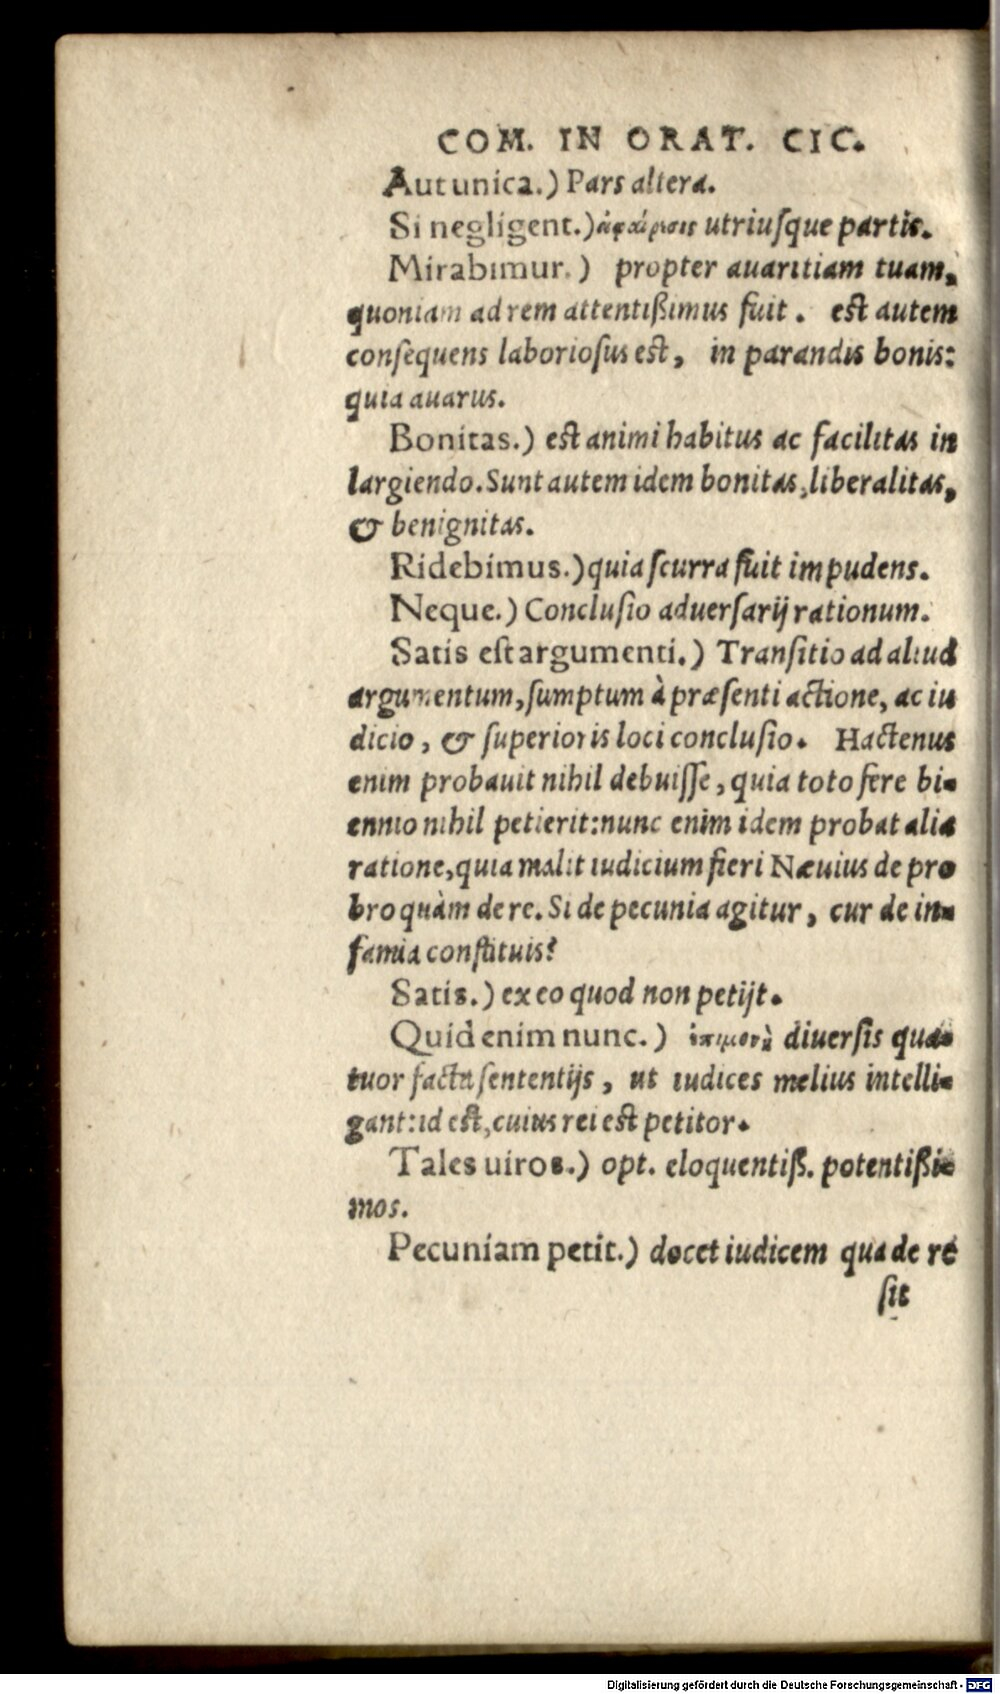 COM. IN ORAT. CIC.
Aut unica.) Pars altera.
Si negligent.) utriusque partis.
Mirabimur.) propter auaritiam tuam,
quoniam ad rem attentißimus fuit. est autem
consequens laboriosus est, in parandis bonis:
quia auarus.
Bonitas.) est animi habitus ac facilitas in
largiendo. Sunt autem idem bonitas, liberalitas,
& benignitas.
Ridebimus.) quia scurra fuit impudens.
Neque.) Conclusio aduersarij rationum.
Satis est argumenti.) Transitio ad aliud
argumentum, sumptum à præsenti actione, ac iu
dicio, & superioris loci conclusio. Hactenus
enim probauit nihil debuisse, quia toto fere bi-
ennio nihil petierit: nunc enim idem probat alia
ratione, quia malit iudicium fieri Næuius de pro
bro quàm de re. Si de pecunia agitur, cur de in-
famia constituis?
Satis.) ex eo quod non petijt.
Quid enim nunc.) diuersis qua-
tuor facta sententijs, ut iudices melius intelli-
gant: id est, cuius rei est petitor.
Tales uiros.) opt. eloquentiß. potentißi-
mos.
Pecuniam petit.) docet iudicem qua de re
sit
Digitalisierung gefördert durch die Deutsche Forschungsgemeinschaft - DFG